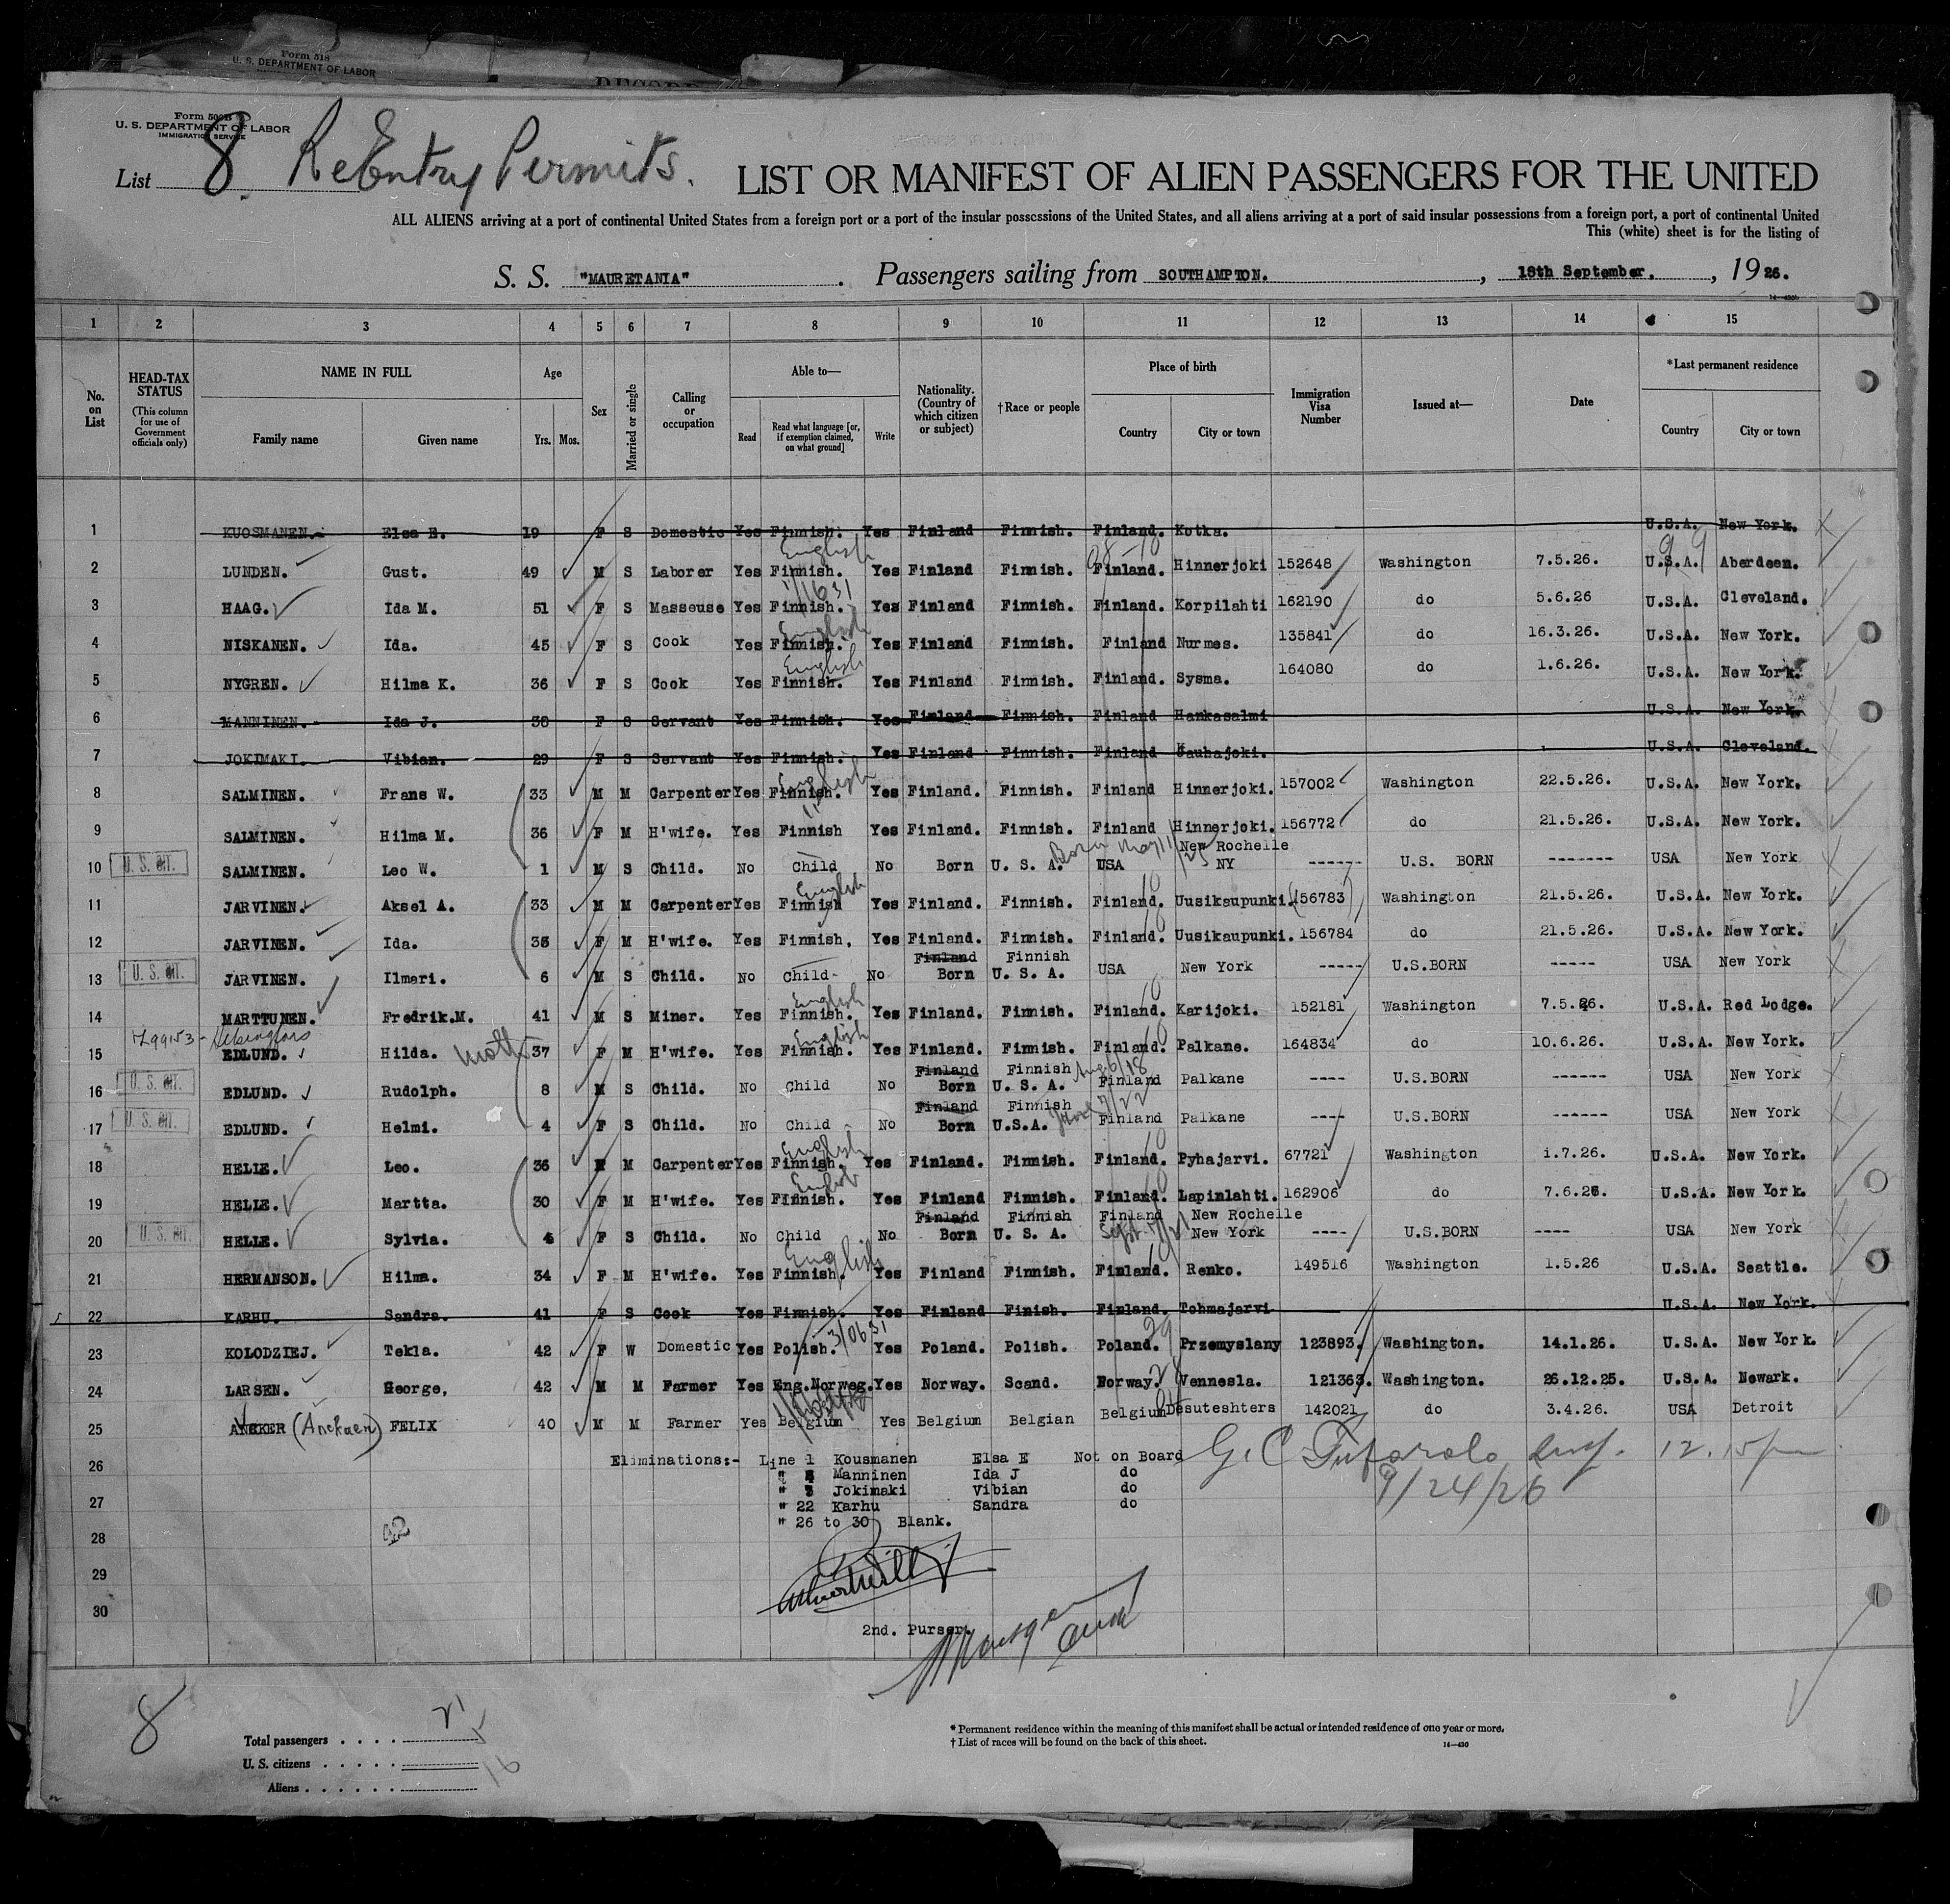 Form 518
U. S. DEPARTMENT OF LABOR
RECORD
Form 500B
U. S. DEPARTMENT OF LABOR
IMMIGRATION SERVICE
List 8 ReEntry Permits. LIST OR MANIFEST OF ALIEN PASSENGERS FOR THE UNITED
ALL ALIENS arriving at a port of continental United States from a foreign port or a port of the insular possessions of the United States, and all aliens arriving at a port of said insular possessions from a foreign port, a port of continental United
This (white) sheet is for the listing of
S. S. "MAURETANIA". Passengers sailing from SOUTHAMPTON. , 18th September. , 1926.
14—430b
1 2 3 4 5 6 7 8 9 10 11 12 13 14 15
No. on List
HEAD-TAX STATUS (This column for use of Government officials only)
NAME IN FULL
Family name Given name
Age
Yrs. Mos.
Sex
Married or single
Calling or occupation
Able to—
Read Read what language [or, if exemption claimed, on what ground] Write
Nationality. (Country of which citizen or subject)
†Race or people
Place of birth
Country City or town
Immigration Visa Number
Issued at—
Date
*Last permanent residence
Country City or town
1 KUOSMANEN. Elsa E. 19 F S Domestic Yes Finnish. Yes Finland Finnish. Finland. Kotka. U.S.A. New York.
2 LUNDEN. Gust. 49 M S Laborer Yes Finnish. English Yes Finland Finnish. Finland. Hinnerjoki 152648 Washington 7.5.26. U.S.A. Aberdeen.
3 HAAG. Ida M. 51 F S Masseuse Yes Finnish. Yes Finland Finnish. Finland. Korpilahti 162190 do 5.6.26 U.S.A. Cleveland.
4 NISKANEN. Ida. 45 F S Cook Yes Finnish. English Yes Finland Finnish. Finland Nurmes. 135841 do 16.3.26. U.S.A. New York.
5 NYGREN. Hilma K. 36 F S Cook Yes Finnish. English Yes Finland Finnish. Finland. Sysma. 164080 do 1.6.26. U.S.A. New York.
6 MANNINEN. Ida J. 38 F S Servant Yes Finnish. Yes Finland Finnish. Finland Hankasalmi U.S.A. New York.
7 JOKIMAKI. Vibian. 29 F S Servant Yes Finnish. Yes Finland Finnish. Finland Kauhajoki. U.S.A. Cleveland.
8 SALMINEN. Frans W. 33 M M Carpenter Yes Finnish. English Yes Finland. Finnish. Finland Hinnerjoki. 157002 Washington 22.5.26. U.S.A. New York.
9 SALMINEN. Hilma M. 36 F M H'wife. Yes Finnish Yes Finland. Finnish. Finland Hinnerjoki. 156772 do 21.5.26. U.S.A. New York.
10 U. S. CIT. SALMINEN. Leo W. 1 M S Child. No Child No Born U. S. A. Born May 11/25 USA New Rochelle NY ------ U.S. BORN ------- USA New York
11 JARVINEN. Aksel A. 33 M M Carpenter Yes Finnish English Yes Finland. Finnish. Finland. Uusikaupunki. 156783 Washington 21.5.26. U.S.A. New York.
12 JARVINEN. Ida. 35 F M H'wife. Yes Finnish. Yes Finland. Finnish. Finland. Uusikaupunki. 156784 do 21.5.26. U.S.A. New York.
13 U. S. CIT. JARVINEN. Ilmari. 6 M S Child. No Child No Finland Born Finnish U. S. A. USA New York ----- U.S.BORN ----- USA New York
14 MARTTUNEN. Fredrik.M. 41 M S Miner. Yes Finnish. English Yes Finland. Finnish. Finland. Karijoki. 152181 Washington 7.5.26. U.S.A. Red Lodge.
Helsingfors
15 EDLUND. Hilda. Mother 37 F M H'wife. Yes Finnish. English Yes Finland. Finnish. Finland. Palkane. 164834 do 10.6.26. U.S.A. New York.
16 U. S. CIT. EDLUND. Rudolph. 8 M S Child. No Child No Finland Born Finnish U. S. A. Aug 6/18 Finland Palkane ---- U.S.BORN ------ USA New York
17 U. S. CIT. EDLUND. Helmi. 4 F S Child. No Child No Finland Born Finnish U.S.A. Finland Palkane ---- U.S.BORN ------ USA New York
18 HELLE. Leo. 36 M M Carpenter Yes Finnish. English Yes Finland. Finnish. Finland. Pyhajarvi. 67721 Washington 1.7.26. U.S.A. New York.
19 HELLE. Martta. 30 F M H'wife. Yes Finnish. English Yes Finland Finnish. Finland. Lapinlahti. 162906 do 7.6.26. U.S.A. New York.
20 U. S. CIT. HELLE. Sylvia. 4 F S Child. No Child No Finland Born Finnish U. S. A. Finland New Rochelle New York ---- U.S.BORN ---- USA New York
21 HERMANSON. Hilma. 34 F M H'wife. Yes Finnish. English Yes Finland Finnish. Finland. Renko. 149516 Washington 1.5.26 U.S.A. Seattle.
22 KARHU. Sandra. 41 F S Cook Yes Finnish. Yes Finland Finish. Finland. Tohmajarvi U.S.A. New York.
23 KOLODZIEJ. Tekla. 42 F W Domestic Yes Polish. Yes Poland. Polish. Poland. Przemyslany 123893. Washington. 14.1.26. U.S.A. New York.
24 LARSEN. George, 42 M M Farmer Yes Eng.Norweg. Yes Norway. Scand. Norway. Vennesla. 121363. Washington. 26.12.25. U.S.A. Newark.
25 ANEKER (Anekaen) FELIX 40 M M Farmer Yes Belgium Yes Belgium Belgian Belgium Desuteshters 142021 do 3.4.26. USA Detroit
26 Eliminations:- Line 1 Kousmanen Elsa E Not on Board
" Manninen Ida J do
27 " Jokimaki Vibian do
" 22 Karhu Sandra do
" 26 to 30 Blank.
12.15pm
9/24/26
28
42
29
30
2nd. Purser.
8
Total passengers . . . . 21
U. S. citizens . . . . . 5
Aliens . . . . . . 16
* Permanent residence within the meaning of this manifest shall be actual or intended residence of one year or more.
† List of races will be found on the back of this sheet.
14—430